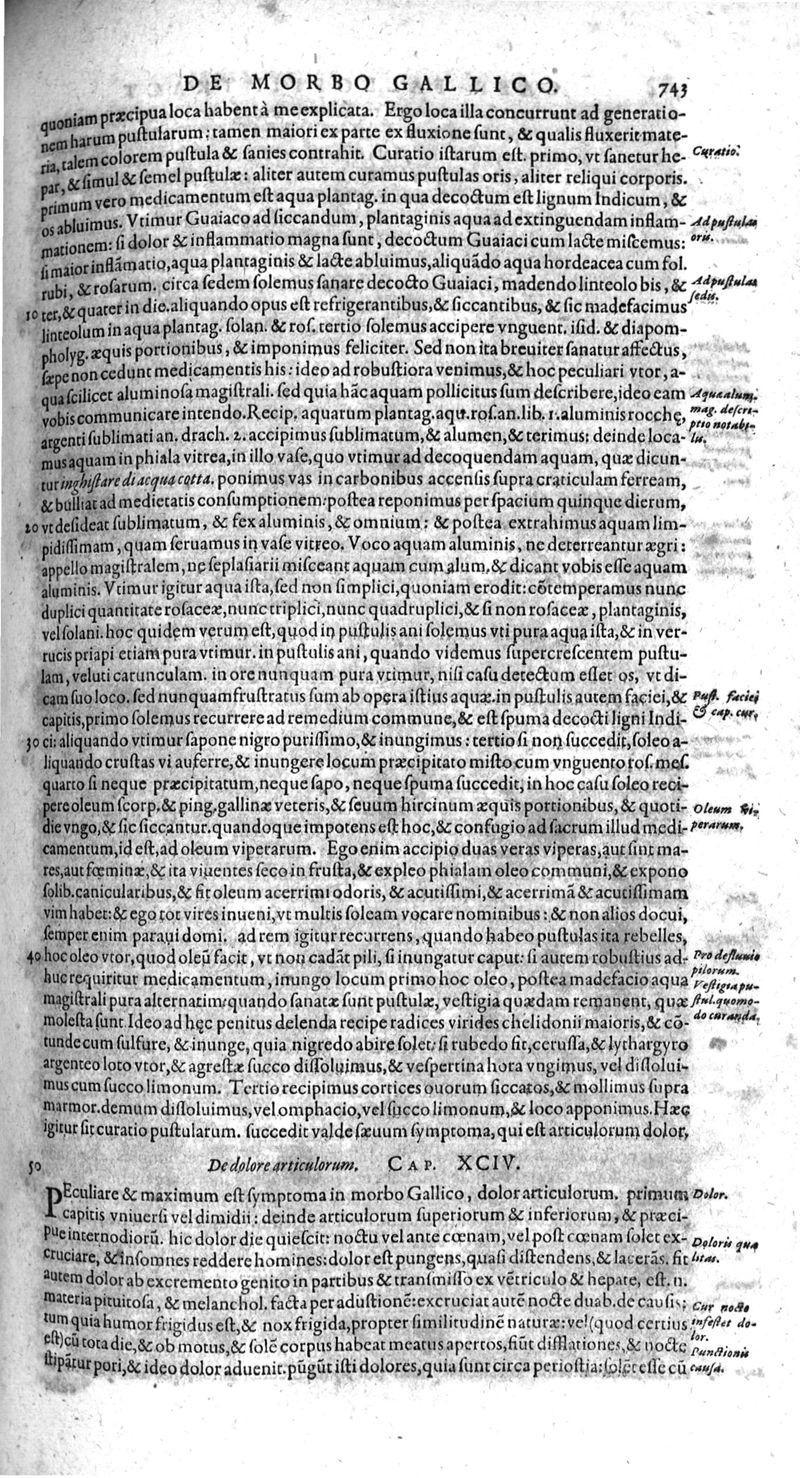 DE MORBO GALLICO. 743
quoniam præcipua loca habent à me explicata. Ergo loca illa concurrunt ad generatio-
nem harum puſtularum: tamen maiori ex parte ex fluxione ſunt, & qualis fluxerit mate-
ria, talem colorem puſtula & ſanies contrahit. Curatio iſtarum eſt. primo, vt ſanetur he- Curatio.
par, & ſimul & ſemel puſtulæ: aliter autem curamus puſtulas oris, aliter reliqui corporis.
primum vero medicamentum eſt aqua plantag. in qua decoctum eſt lignum Indicum, &
os abluimus. Vtimur Guaiaco ad ſiccandum, plantaginis aqua ad extinguendam inflam- Ad puſtulas
mationem: ſi dolor & inflammatio magna ſunt, decoctum Guaiaci cum lacte miſcemus: oris.
ſi maior inflãmatio, aqua plantaginis & lacte abluimus, aliquãdo aqua hordeacea cum fol.
rubi, & roſarum. circa ſedem ſolemus ſanare decocto Guaiaci, madendo linteolo bis, & Ad puſtulas
10 ter, & quater in die. aliquando opus eſt refrigerantibus, & ſiccantibus, & ſic madefacimus ſedis.
linteolum in aqua plantag. ſolan. & roſ. tertio ſolemus accipere vnguent. iſid. & diapom-
pholyg. æquis portionibus, & imponimus feliciter. Sed non ita breuiter ſanatur affectus,
ſæpe non cedunt medicamentis his: ideo ad robuſtiora venimus, & hoc peculiari vtor, a-
qua ſcilicet aluminoſa magiſtrali. ſed quia hãc aquam pollicitus ſum deſcribere, ideo eam Aqua alum.
vobis communicare intendo. Recip. aquarum plantag. aqu. roſ. an. lib. 1. aluminis rocchę, mag. deſcri-
argenti ſublimati an. drach. 2. accipimus ſublimatum, & alumen, & terimus: deinde loca- ptio notabi-
mus aquam in phiala vitrea, in illo vaſe, quo vtimur ad decoquendam aquam, quæ dicun- lis.
tur inghiſtare di acqua cotta. ponimus vas in carbonibus accenſis ſupra craticulam ferream,
& bulliat ad medietatis conſumptionem: poſtea reponimus per ſpacium quinque dierum,
20 vt deſideat ſublimatum, & fex aluminis, & omnium: & poſtea extrahimus aquam lim-
pidiſſimam, quam ſeruamus in vaſe vitreo. Voco aquam aluminis, ne deterreantur ægri:
appello magiſtralem, ne ſeplaſiarii miſceant aquam cum alum, & dicant vobis eſſe aquam
aluminis. Vtimur igitur aqua iſta, ſed non ſimplici, quoniam erodit: cõtemperamus nunc
duplici quantitate roſaceæ, nunc triplici, nunc quadruplici, & ſi non roſaceæ, plantaginis,
vel ſolani. hoc quidem verum eſt, quod in puſtulis ani ſolemus vti pura aqua iſta, & in ver-
rucis priapi etiam pura vtimur. in puſtulis ani, quando videmus ſupercreſcentem puſtu-
lam, veluti carunculam. in ore nunquam pura vtimur, niſi caſu detectum eſſet os, vt di-
cam ſuo loco. ſed nunquam fruſtratus ſum ab opera iſtius aquæ. in puſtulis autem faciei, & Puſt. faciei
capitis, primo ſolemus recurrere ad remedium commune, & eſt ſpuma decocti ligni Indi- & cap. cur.
30 ci: aliquando vtimur ſapone nigro puriſſimo, & inungimus: tertio ſi non ſuccedit, ſoleo a-
liquando cruſtas vi auferre, & inungere locum præcipitato miſto cum vnguento roſ. meſ.
quarto ſi neque præcipitatum, neque ſapo, neque ſpuma ſuccedit, in hoc caſu ſoleo reci-
pere oleum ſcorp. & ping. gallinæ veteris, & ſeuum hircinum æquis portionibus, & quoti- Oleum vi-
die vngo, & ſic ſiccantur. quandoque impotens eſt hoc, & confugio ad ſacrum illud medi- perarum.
camentum, id eſt, ad oleum viperarum. Ego enim accipio duas veras viperas, aut ſint ma-
res, aut fœminæ, & ita viuentes ſeco in fruſta, & expleo phialam oleo communi, & expono
ſolib. canicularibus, & fit oleum acerrimi odoris, & acutiſſimi, & acerrimã & acutiſſimam
vim habet: & ego tot vires inueni, vt multis ſoleam vocare nominibus: & non alios docui,
ſemper enim paraui domi. ad rem igitur recurrens, quando habeo puſtulas ita rebelles,
40 hoc oleo vtor, quod oleũ facit, vt non cadãt pili, ſi inungatur caput: ſi autem robuſtius ad- Pro defluuio
huc requiritur medicamentum, inungo locum primo hoc oleo, poſtea madefacio aqua pilorum.
magiſtrali pura alternatim: quando ſanatæ ſunt puſtulæ, veſtigia quædam remanent, quæ Veſtigia pu-
moleſta ſunt. Ideo ad hęc penitus delenda recipe radices virides chelidonii maioris, & cõ- ſtul. quomo-
tunde cum ſulfure, & inunge, quia nigredo abire ſolet: ſi rubedo ſit, ceruſſa, & lythargyro do curanda.
argenteo loto vtor, & agreſtæ ſucco diſſoluimus, & veſpertina hora vngimus, vel diſſolui-
mus cum ſucco limonum. Tertio recipimus cortices ouorum ſiccatos, & mollimus ſupra
marmor. demum diſſoluimus, vel omphacio, vel ſucco limonum, & loco apponimus. Hæc
igitur ſit curatio puſtularum. ſuccedit valde ſæuum ſymptoma, qui eſt articulorum dolor.
50 De dolore articulorum. CAP. XCIV.
PEculiare & maximum eſt ſymptoma in morbo Gallico, dolor articulorum. primum Dolor.
capitis vniuerſi vel dimidii: deinde articulorum ſuperiorum & inferiorum, & præci-
pue internodiorũ. hic dolor die quieſcit: noctu vel ante cœnam, vel poſt cœnam ſolet ex- Doloris qua
cruciare, & inſomnes reddere homines: dolor eſt pungens, quaſi diſtendens, & lacerãs. fit litas.
autem dolor ab excremento genito in partibus & tranſmiſſo ex vẽtriculo & hepate, eſt. n.
materia pituitoſa, & melanchol. facta per aduſtionẽ: excruciat autẽ nocte duab. de cauſis: Cur nocte
tum quia humor frigidus eſt, & nox frigida, propter ſimilitudinẽ naturæ: vel (quod certius infeſtet do-
eſt) cũ tota die, & ob motus, & ſolẽ corpus habeat meatus apertos, fiũt difflationes, & nocte lor.
ſtipãtur pori, & ideo dolor aduenit. pũgũt iſti dolores, quia ſunt circa perioſtia: ſolẽt eſſe cũ Punctionis cauſa.